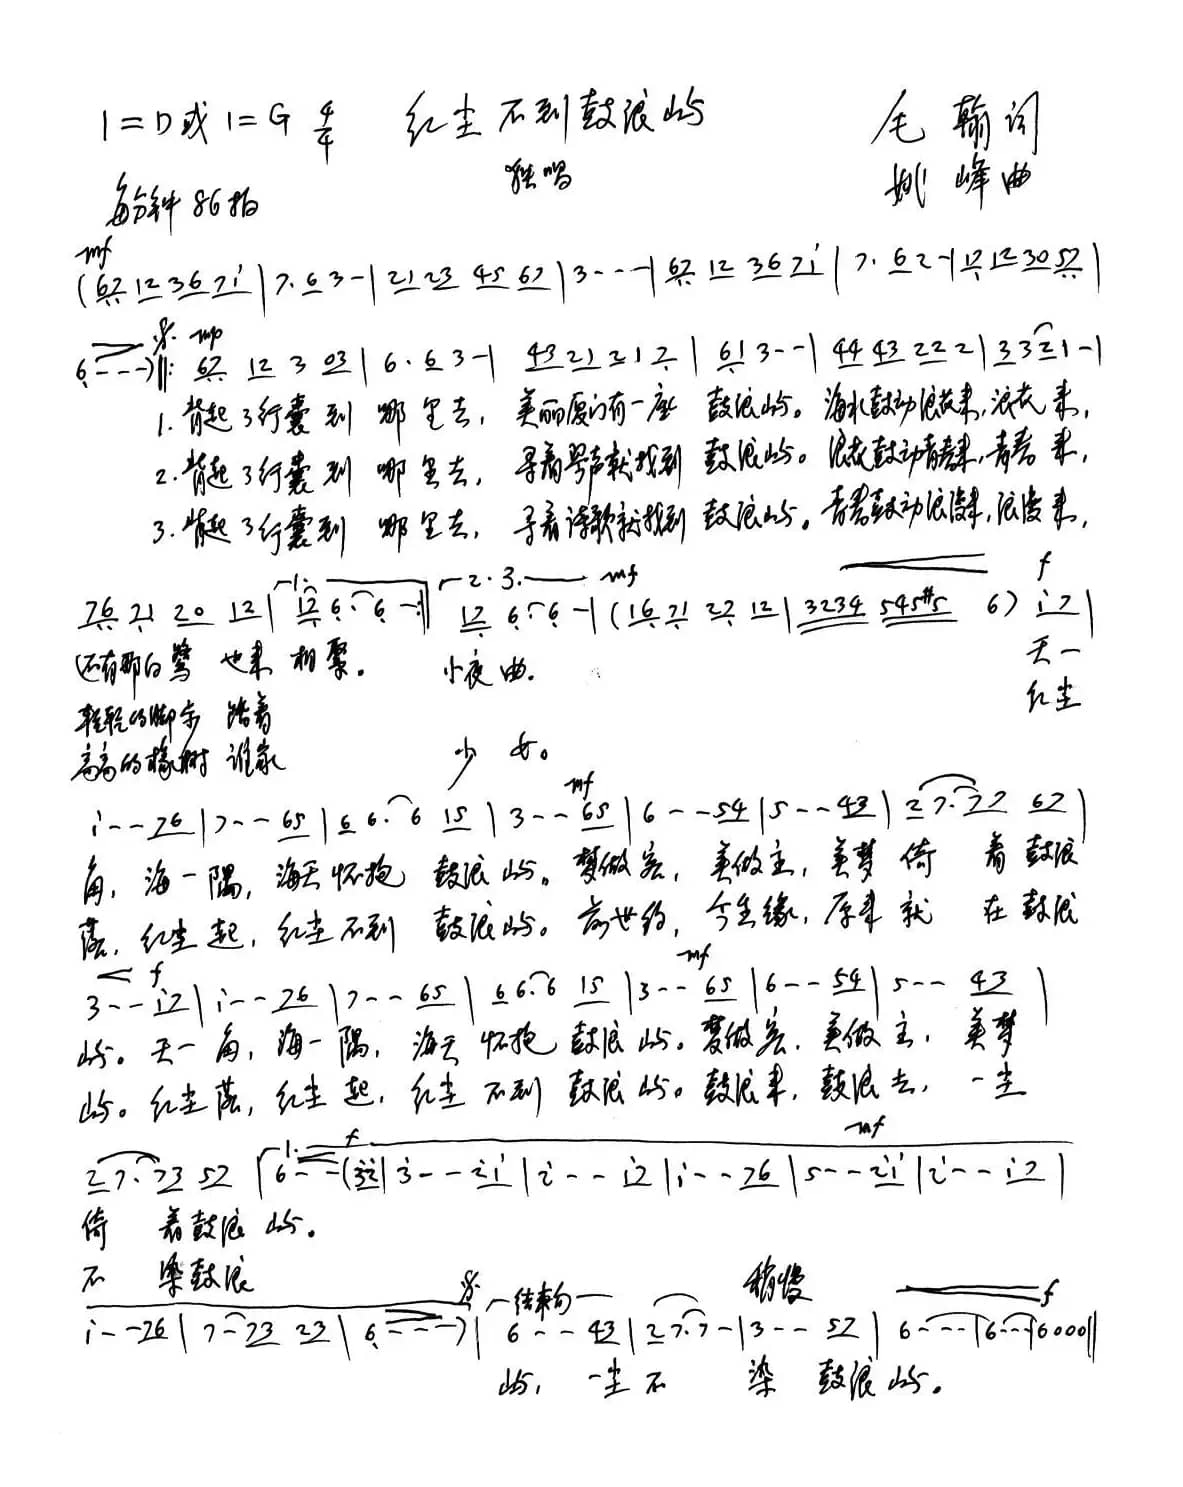 1=D或1=G 4/4 红尘不到鼓浪屿 毛翰词
独唱 姚峰曲
每分钟86拍
mf
(67 12 36 71̇ | 7· 6 3 - | 21 23 45 67 | 3 - - - | 67 12 36 71̇ | 7· 6 2 - | 17 12 30 57 |
mp
6 - - -) ‖: 67 12 3 03 | 6· 6 3 - | 43 21 21 7 | 61 3 - - | 44 43 22 2 | 33 21 - |
1. 背起了行囊到 哪里去, 美丽厦门有一座 鼓浪屿。 海水鼓动浪花来, 浪花来,
2. 背起了行囊到 哪里去, 寻着琴声就找到 鼓浪屿。 浪花鼓动青春来, 青春来,
3. 背起了行囊到 哪里去, 寻着诗歌就找到 鼓浪屿。 青春鼓动浪漫来, 浪漫来,
1. 2. 3. mf f
76 71 20 12 | 17 6· 6 - :‖ 17 6· 6 - | (16 71 27 12 | 3234 545#5 6) 1̇7 |
还有那白鹭 也来 相聚。 小夜曲. 天一
轻轻的脚步 踏着 红尘
高高的橡树 谁家 少女。
mf
1̇ - - 76 | 7 - - 65 | 6 6· 6 15 | 3 - - 65 | 6 - - 54 | 5 - - 43 | 2 7· 77 67 |
角, 海一隅, 海天怀抱 鼓浪屿。 梦做客, 美做主, 美梦倚 着鼓浪
落, 红尘起, 红尘不到 鼓浪屿。 前世约, 今生缘, 原来就 在鼓浪
f mf
3 - - 1̇7 | 1̇ - - 76 | 7 - - 65 | 6 6· 6 15 | 3 - - 65 | 6 - - 54 | 5 - - 43 |
屿。 天一角, 海一隅, 海天怀抱 鼓浪屿。 梦做客, 美做主, 美梦
屿。 红尘落, 红尘起, 红尘不到 鼓浪屿。 鼓浪来, 鼓浪去, 一尘
1. f mf
2 7· 73 57 | 6 - - (3̇2̇ | 3̇ - - 2̇1̇ | 2̇ - - 1̇7 | 1̇ - - 76 | 5 - - 2̇1̇ | 2̇ - - 1̇7 |
倚 着鼓浪屿。
不 染鼓浪
结束句 稍慢 f
1̇ - - 76 | 7 - 73 23 | 6 - - -) | 6 - - 43 | 2 7· 7 - | 3 - - 57 | 6 - - - | 6 - - - | 6 0 0 0 ‖
屿, 一尘不 染 鼓浪屿。